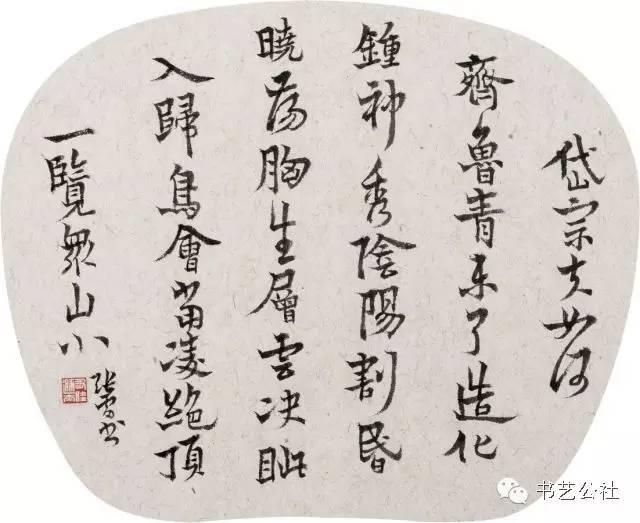 岱宗夫如何
齊魯青未了造化
鍾神秀陰陽割昏
曉荡胸生層雲决眦
入歸鳥會當凌絶頂
一覽衆山小
书艺公社